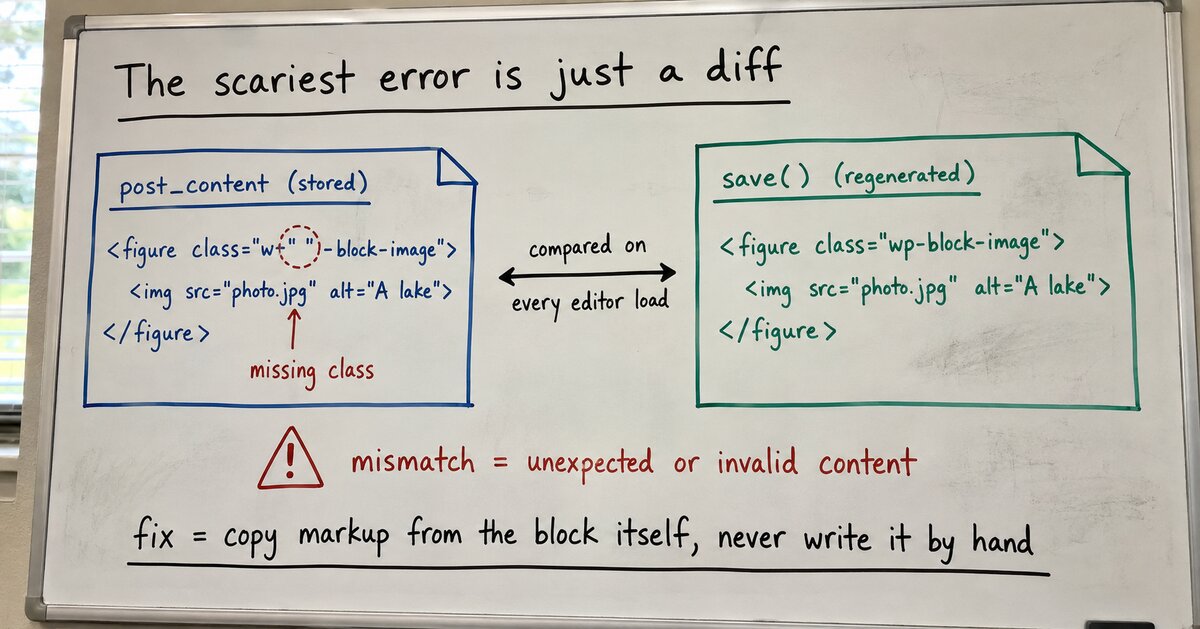 The scariest error is just a diff
post_content (stored)
<figure class="wt" ")-block-image">
<img src="photo.jpg" alt="A lake">
</figure>
missing class
compared on
every editor load
save() (regenerated)
<figure class="wp-block-image">
<img src="photo.jpg" alt="A lake">
</figure>
! mismatch = unexpected or invalid content
fix = copy markup from the block itself, never write it by hand